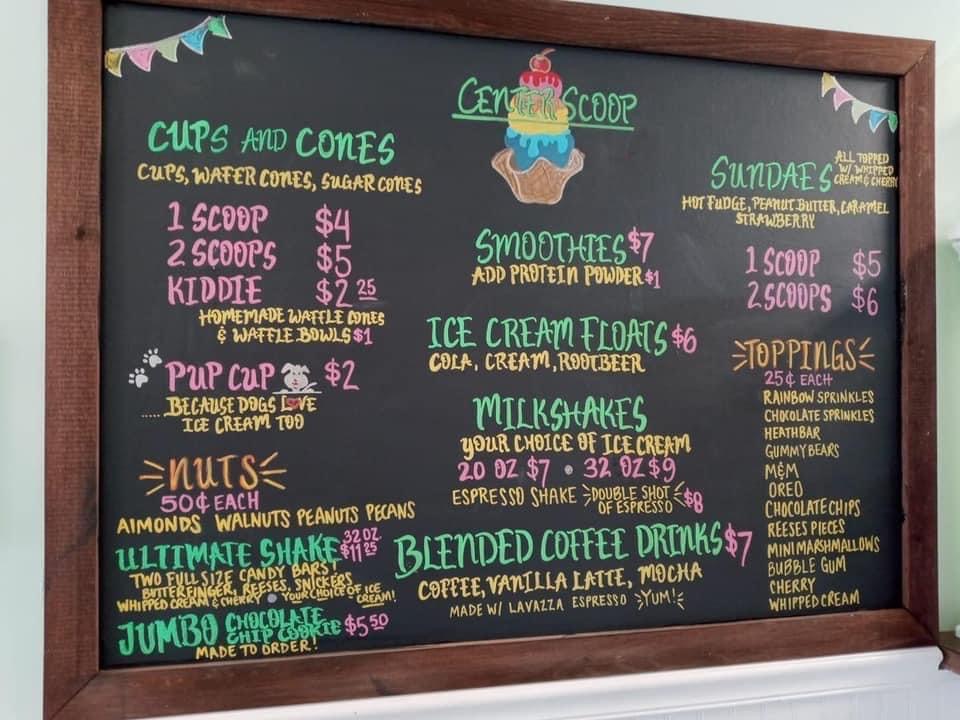 CENTER SCOOP
CUPS AND CONES
CUPS, WAFER CONES, SUGAR CONES
1 SCOOP $4
2 SCOOPS $5
KIDDIE $2 25
HOMEMADE WAFFLE CONES
& WAFFLE BOWLS $1
PUP CUP $2
..... BECAUSE DOGS LOVE
ICE CREAM TOO
NUTS
50¢ EACH
AlMONDS WALNUTS PEANUTS PECANS
ULTIMATE SHAKE 32 OZ. $11 25
TWO FULL SIZE CANDY BARS!
BUTTERFINGER, REESES, SNICKERS
WHIPPED CREAM & CHERRY • YOUR CHOICE OF ICE CREAM!
JUMBO CHOCOLATE CHIP COOKIE $5 50
MADE TO ORDER!
SMOOTHIES $7
ADD PROTEIN POWDER $1
ICE CREAM FLOATS $6
COLA, CREAM, ROOTBEER
MILKSHAKES
YOUR CHOICE OF ICE CREAM
20 OZ $7 • 32 OZ $9
ESPRESSO SHAKE DOUBLE SHOT OF ESPRESSO $8
BLENDED COFFEE DRINKS $7
COFFEE, VANILLA LATTE, MOCHA
MADE W/ LAVAZZA ESPRESSO YUM!
SUNDAES ALL TOPPED W/ WHIPPED CREAM & CHERRY
HOT FUDGE, PEANUT BUTTER, CARAMEL
STRAWBERRY
1 SCOOP $5
2 SCOOPS $6
TOPPINGS
25¢ EACH
RAINBOW SPRINKLES
CHOCOLATE SPRINKLES
HEATH BAR
GUMMY BEARS
M&M
OREO
CHOCOLATE CHIPS
REESES PIECES
MINI MARSHMALLOWS
BUBBLE GUM
CHERRY
WHIPPED CREAM